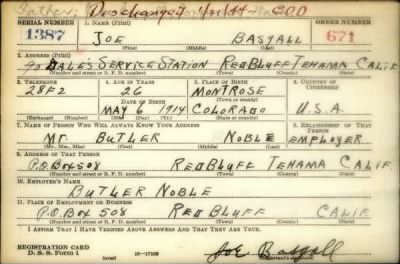 Father: Discharged 1/21/44 COO
SERIAL NUMBER 1. NAME (Print) ORDER NUMBER
1387 JOE BASGALL 671
(First) (Middle) (Last)
2. ADDRESS (Print)
% DALE'S SERVICE STATION RED BLUFF TEHAMA CALIF.
(Number and street or R. F. D. number) (Town) (County) (State)
3. TELEPHONE 4. AGE IN YEARS 5. PLACE OF BIRTH 6. COUNTRY OF CITIZENSHIP
28F2 26 MONTROSE
DATE OF BIRTH (Town or county)
MAY 6 1914 COLORADO U.S.A.
(Mo.) (Day) (Yr.) (State or country)
7. NAME OF PERSON WHO WILL ALWAYS KNOW YOUR ADDRESS 8. RELATIONSHIP OF THAT PERSON
MR. BUTLER NOBLE EMPLOYER
(Mr., Mrs., Miss) (First) (Middle) (Last)
9. ADDRESS OF THAT PERSON
P.O. BOX 508 RED BLUFF TEHAMA CALIF.
(Number and street or R. F. D. number) (Town) (County) (State)
10. EMPLOYER'S NAME
BUTLER NOBLE
11. PLACE OF EMPLOYMENT OR BUSINESS
P.O. BOX 508 RED BLUFF CALIF.
(Number and street or R. F. D. number) (Town) (County) (State)
I AFFIRM THAT I HAVE VERIFIED ABOVE ANSWERS AND THAT THEY ARE TRUE.
REGISTRATION CARD
D. S. S. Form 1 (over) 16—17105 Joe Basgall